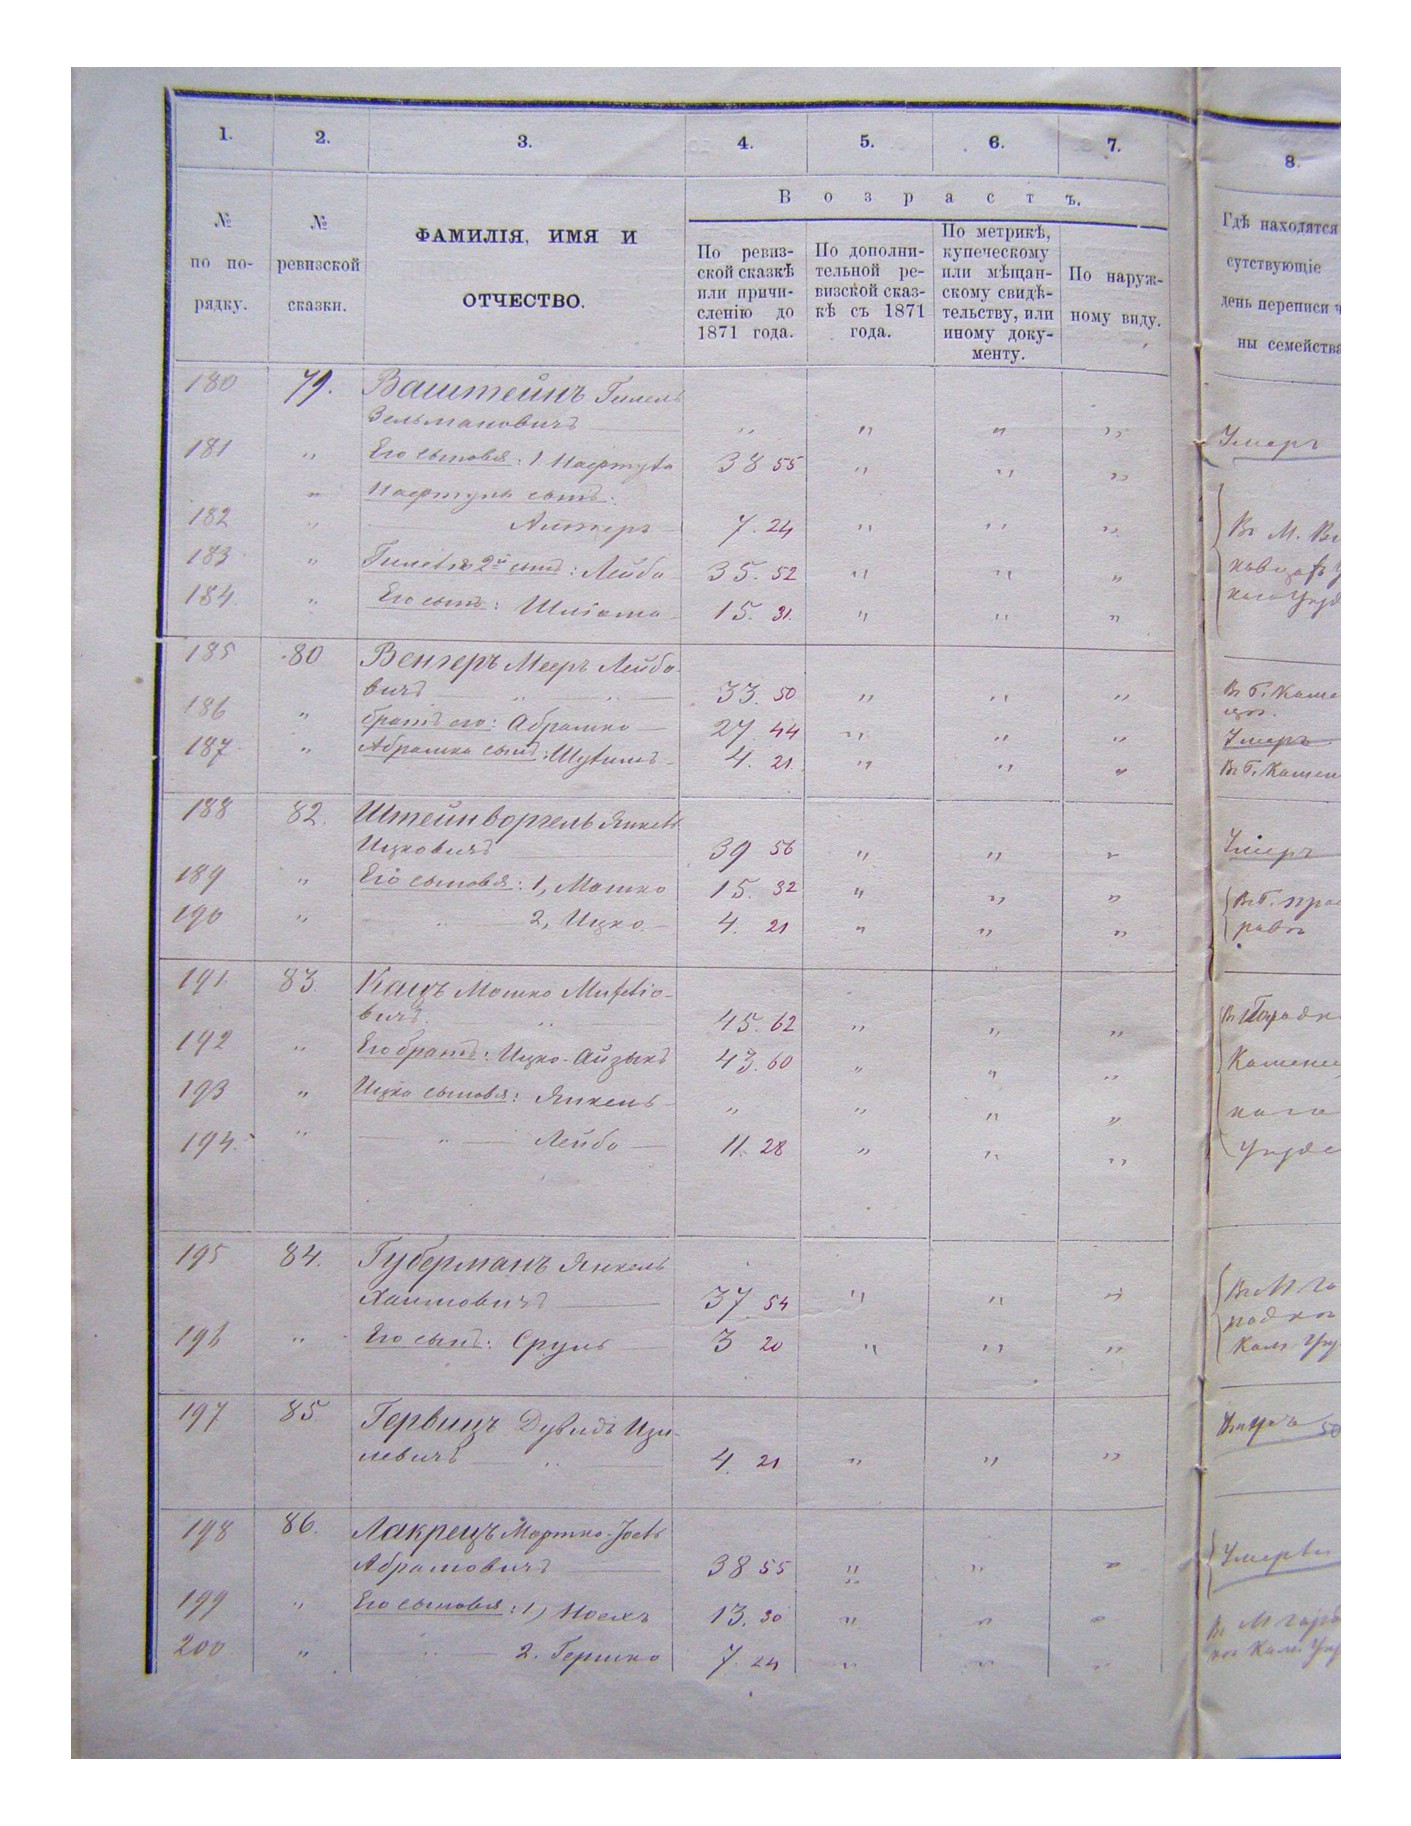 1. 2. 3. 4. 5. 6. 7. 8.
Возрастъ.
№ по порядку.
№ ревизской сказки.
ФАМИЛІЯ, ИМЯ И
ОТЧЕСТВО.
По ревиз-
ской сказкѣ
или причи-
сленію до
1871 года.
По дополни-
тельной ре-
визской сказ-
кѣ съ 1871
года.
По метрикѣ,
купеческому
или мѣщан-
скому свидѣ-
тельству, или
иному доку-
менту.
По наруж-
ному виду.
Гдѣ находятся
сутствующіе
день переписи
ны семейства
180 79. Ваштейнъ Гилель
Зельмановичъ „ „ „ „ Умеръ
181 „ Его сыновья: 1 38 55 „ „ „
„ сынъ:
182 „ Алтеръ 7. 24 „ „ „
183 „ 2й сынъ: Лейба 35. 52 „ „ „
184. „ Его сынъ: Шліома 15. 31. „ „ „
185 80 Венгеръ Мееръ Лейбо-
вичъ „ „ 33. 50 „ „ „
186 „ братъ его: Абрамко 27. 44 „ „ „ Умеръ
187. „ Абрамка сынъ: 4. 21. „ „ „
188 82. Штейнворцель Янкель
Ицковичъ 39 56 „ „ „ Умеръ
189 „ Его сыновья: 1, Мошко 15. 32 „ „ „
190 „ 2, Ицко 4. 21 „ „ „
191. 83. Кацъ Мошко
вичъ „ 45. 62 „ „ „
192 „ Его братъ: Ицко-Айзыкъ 43. 60 „ „ „
193 „ Ицка сыновья: Янкель „ „ „ „
194. „ „ Лейба 11. 28 „ „ „
195 84. Губерманъ Янкель
Хаимовичъ 37 54 „ „ „
196 „ Его сынъ: Сруль 3 20 „ „ „
197 85. Гервицъ Дувидъ Изи-
левичъ „ 4. 21 „ „ „
198 86. Лакрецъ
Абрамовичъ 38 55 „ „ „
199 „ Его сыновья: 1, 13. 30 „ „ „
200 „ „ 2. Гершко 7. 24 „ „ „